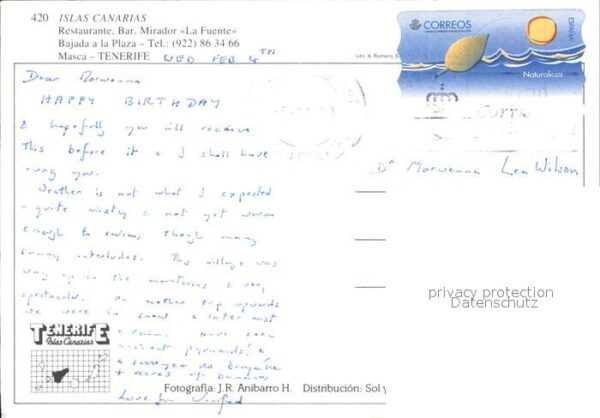 420 ISLAS CANARIAS
Restaurante, Bar, Mirador «La Fuente»
Bajada a la Plaza – Tel.: (922) 86 34 66
Masca – TENERIFE
WED FEB 4TH
Lito. A. Romero, S.
CORREOS
ESPAÑA
Naturaleza
Corre
Dear Morwenna
HAPPY BIRTHDAY
& hopefully you will receive
This before it & I shall have
rung you.
Weather is not what I expected
- quite misty & not yet warm
enough to swim, Though many
sunny interludes. This village was
way up in the mountains & very
spectacular. On another trip upwards
we were in snow & later mist
& rain. Have seen
ancient pyramids! &
a
+ acres of bananas
Love from Winifred
Dr Morwenna Lea Wilson
privacy protection
Datenschutz
TENERIFE
Islas Canarias
Fotografía: J.R. Anibarro H. Distribución: Sol y